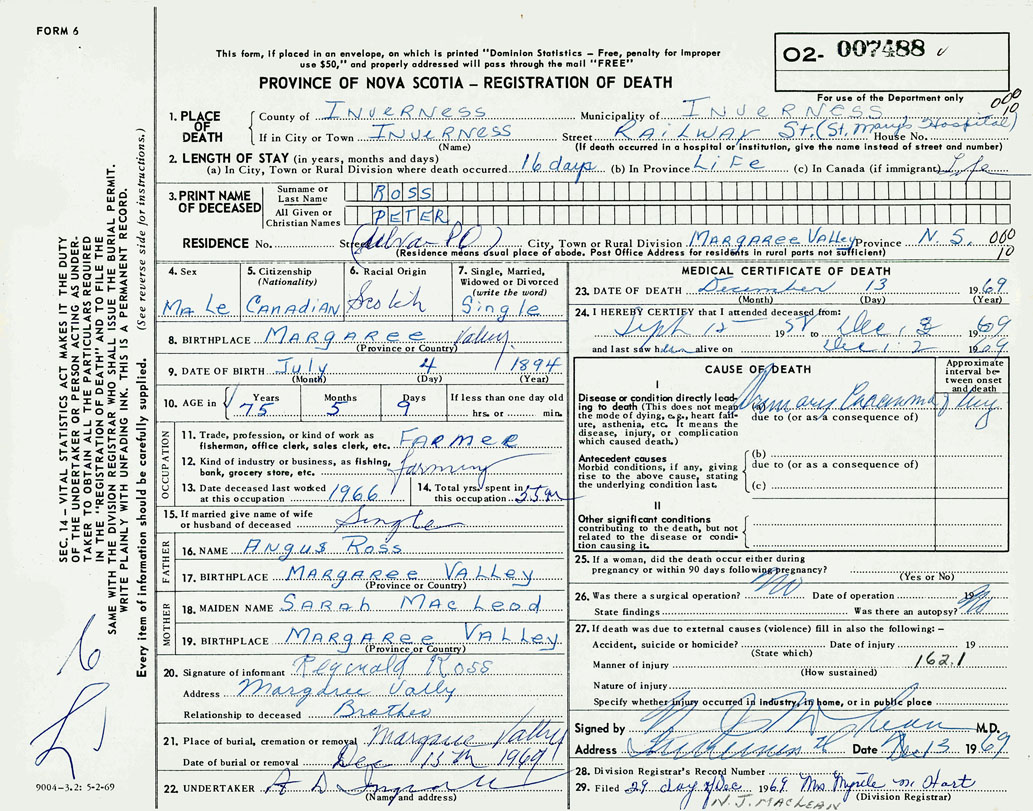 FORM 6
This form, if placed in an envelope, on which is printed "Dominion Statistics – Free, penalty for improper
use $50," and properly addressed will pass through the mail "FREE"
PROVINCE OF NOVA SCOTIA – REGISTRATION OF DEATH
02- 007488
For use of the Department only
000
10
1. PLACE OF DEATH
County of INVERNESS Municipality of INVERNESS
If in City or Town INVERNESS Street RAILWAY St. (St. Mary's Hospital) House No.
(Name) (If death occurred in a hospital or institution, give the name instead of street and number)
2. LENGTH OF STAY (in years, months and days)
(a) In City, Town or Rural Division where death occurred 16 days (b) In Province Life (c) In Canada (if immigrant) Life
3. PRINT NAME OF DECEASED
Surname or Last Name ROSS
All Given or Christian Names PETER
RESIDENCE No. Street City, Town or Rural Division MARGAREE Valley Province N.S. 000
(Residence means usual place of abode. Post Office Address for residents in rural parts not sufficient) 10
4. Sex MaLe
5. Citizenship (Nationality) CANADIAN
6. Racial Origin Scotch
7. Single, Married, Widowed or Divorced (write the word) Single
8. BIRTHPLACE MARGAREE Valley
(Province or Country)
9. DATE OF BIRTH July 4 1894
(Month) (Day) (Year)
10. AGE in Years 75 Months 5 Days 9 If less than one day old hrs. or min.
OCCUPATION
11. Trade, profession, or kind of work as fisherman, office clerk, sales clerk, etc. FARMER
12. Kind of industry or business, as fishing, bank, grocery store, etc. farming
13. Date deceased last worked at this occupation 1966
14. Total yrs. spent in this occupation 55
15. If married give name of wife or husband of deceased Single
FATHER
16. NAME ANGUS ROSS
17. BIRTHPLACE MARGAREE VALLEY
(Province or Country)
MOTHER
18. MAIDEN NAME SARAH MacLeod
19. BIRTHPLACE MARGAREE VALLEY
(Province or Country)
20. Signature of informant Reginald Ross
Address Margaree Vally
Relationship to deceased Brother
21. Place of burial, cremation or removal Margaree Vally
Date of burial or removal Dec 15th 1969
22. UNDERTAKER
(Name and address)
MEDICAL CERTIFICATE OF DEATH
23. DATE OF DEATH December 13 1969
(Month) (Day) (Year)
24. I HEREBY CERTIFY that I attended deceased from:
Sept 12 19 to Dec 1969
and last saw him alive on Dec 12 1969
CAUSE OF DEATH
Approximate interval between onset and death
I
Disease or condition directly leading to death (This does not mean the mode of dying, e.g., heart failure, asthenia, etc. It means the disease, injury, or complication which caused death.)
(a)
due to (or as a consequence of)
Antecedent causes
Morbid conditions, if any, giving rise to the above cause, stating the underlying condition last.
(b)
due to (or as a consequence of)
(c)
II
Other significant conditions
contributing to the death, but not related to the disease or condition causing it.
25. If a woman, did the death occur either during
pregnancy or within 90 days following pregnancy?
(Yes or No)
26. Was there a surgical operation? No Date of operation 19
State findings Was there an autopsy? No
27. If death was due to external causes (violence) fill in also the following: –
Accident, suicide or homicide? Date of injury 19
(State which)
Manner of injury 162.1
(How sustained)
Nature of injury
Specify whether injury occurred in industry, in home, or in public place
Signed by M.D.
Address Date Dec 13 1969
28. Division Registrar's Record Number
29. Filed 29 day of Dec 1969 Mrs Myrtle M. Hart
(Division Registrar)
N.J. MACLEAN
SEC. 14 – VITAL STATISTICS ACT MAKES IT THE DUTY
OF THE UNDERTAKER OR PERSON ACTING AS UNDERTAKER TO OBTAIN ALL THE PARTICULARS REQUIRED
IN THE "REGISTRATION OF DEATH" AND TO FILE THE
SAME WITH THE DIVISION REGISTRAR WHO SHALL ISSUE THE BURIAL PERMIT.
WRITE PLAINLY WITH UNFADING INK. THIS IS A PERMANENT RECORD.
Every item of information should be carefully supplied. (See reverse side for instructions.)
9004-3.2: 5-2-69